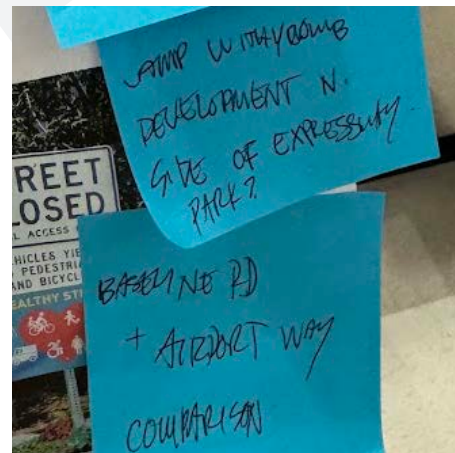 CAMP WITHYCOMB
DEVELOPMENT N.
SIDE OF EXPRESSWAY
PARK?
BASELINE RD
+ AIRPORT WAY
COMPARISON
REET
OSED
L ACCESS
HICLES YIE
PEDESTRIA
AND BICYCL
EALTHY ST